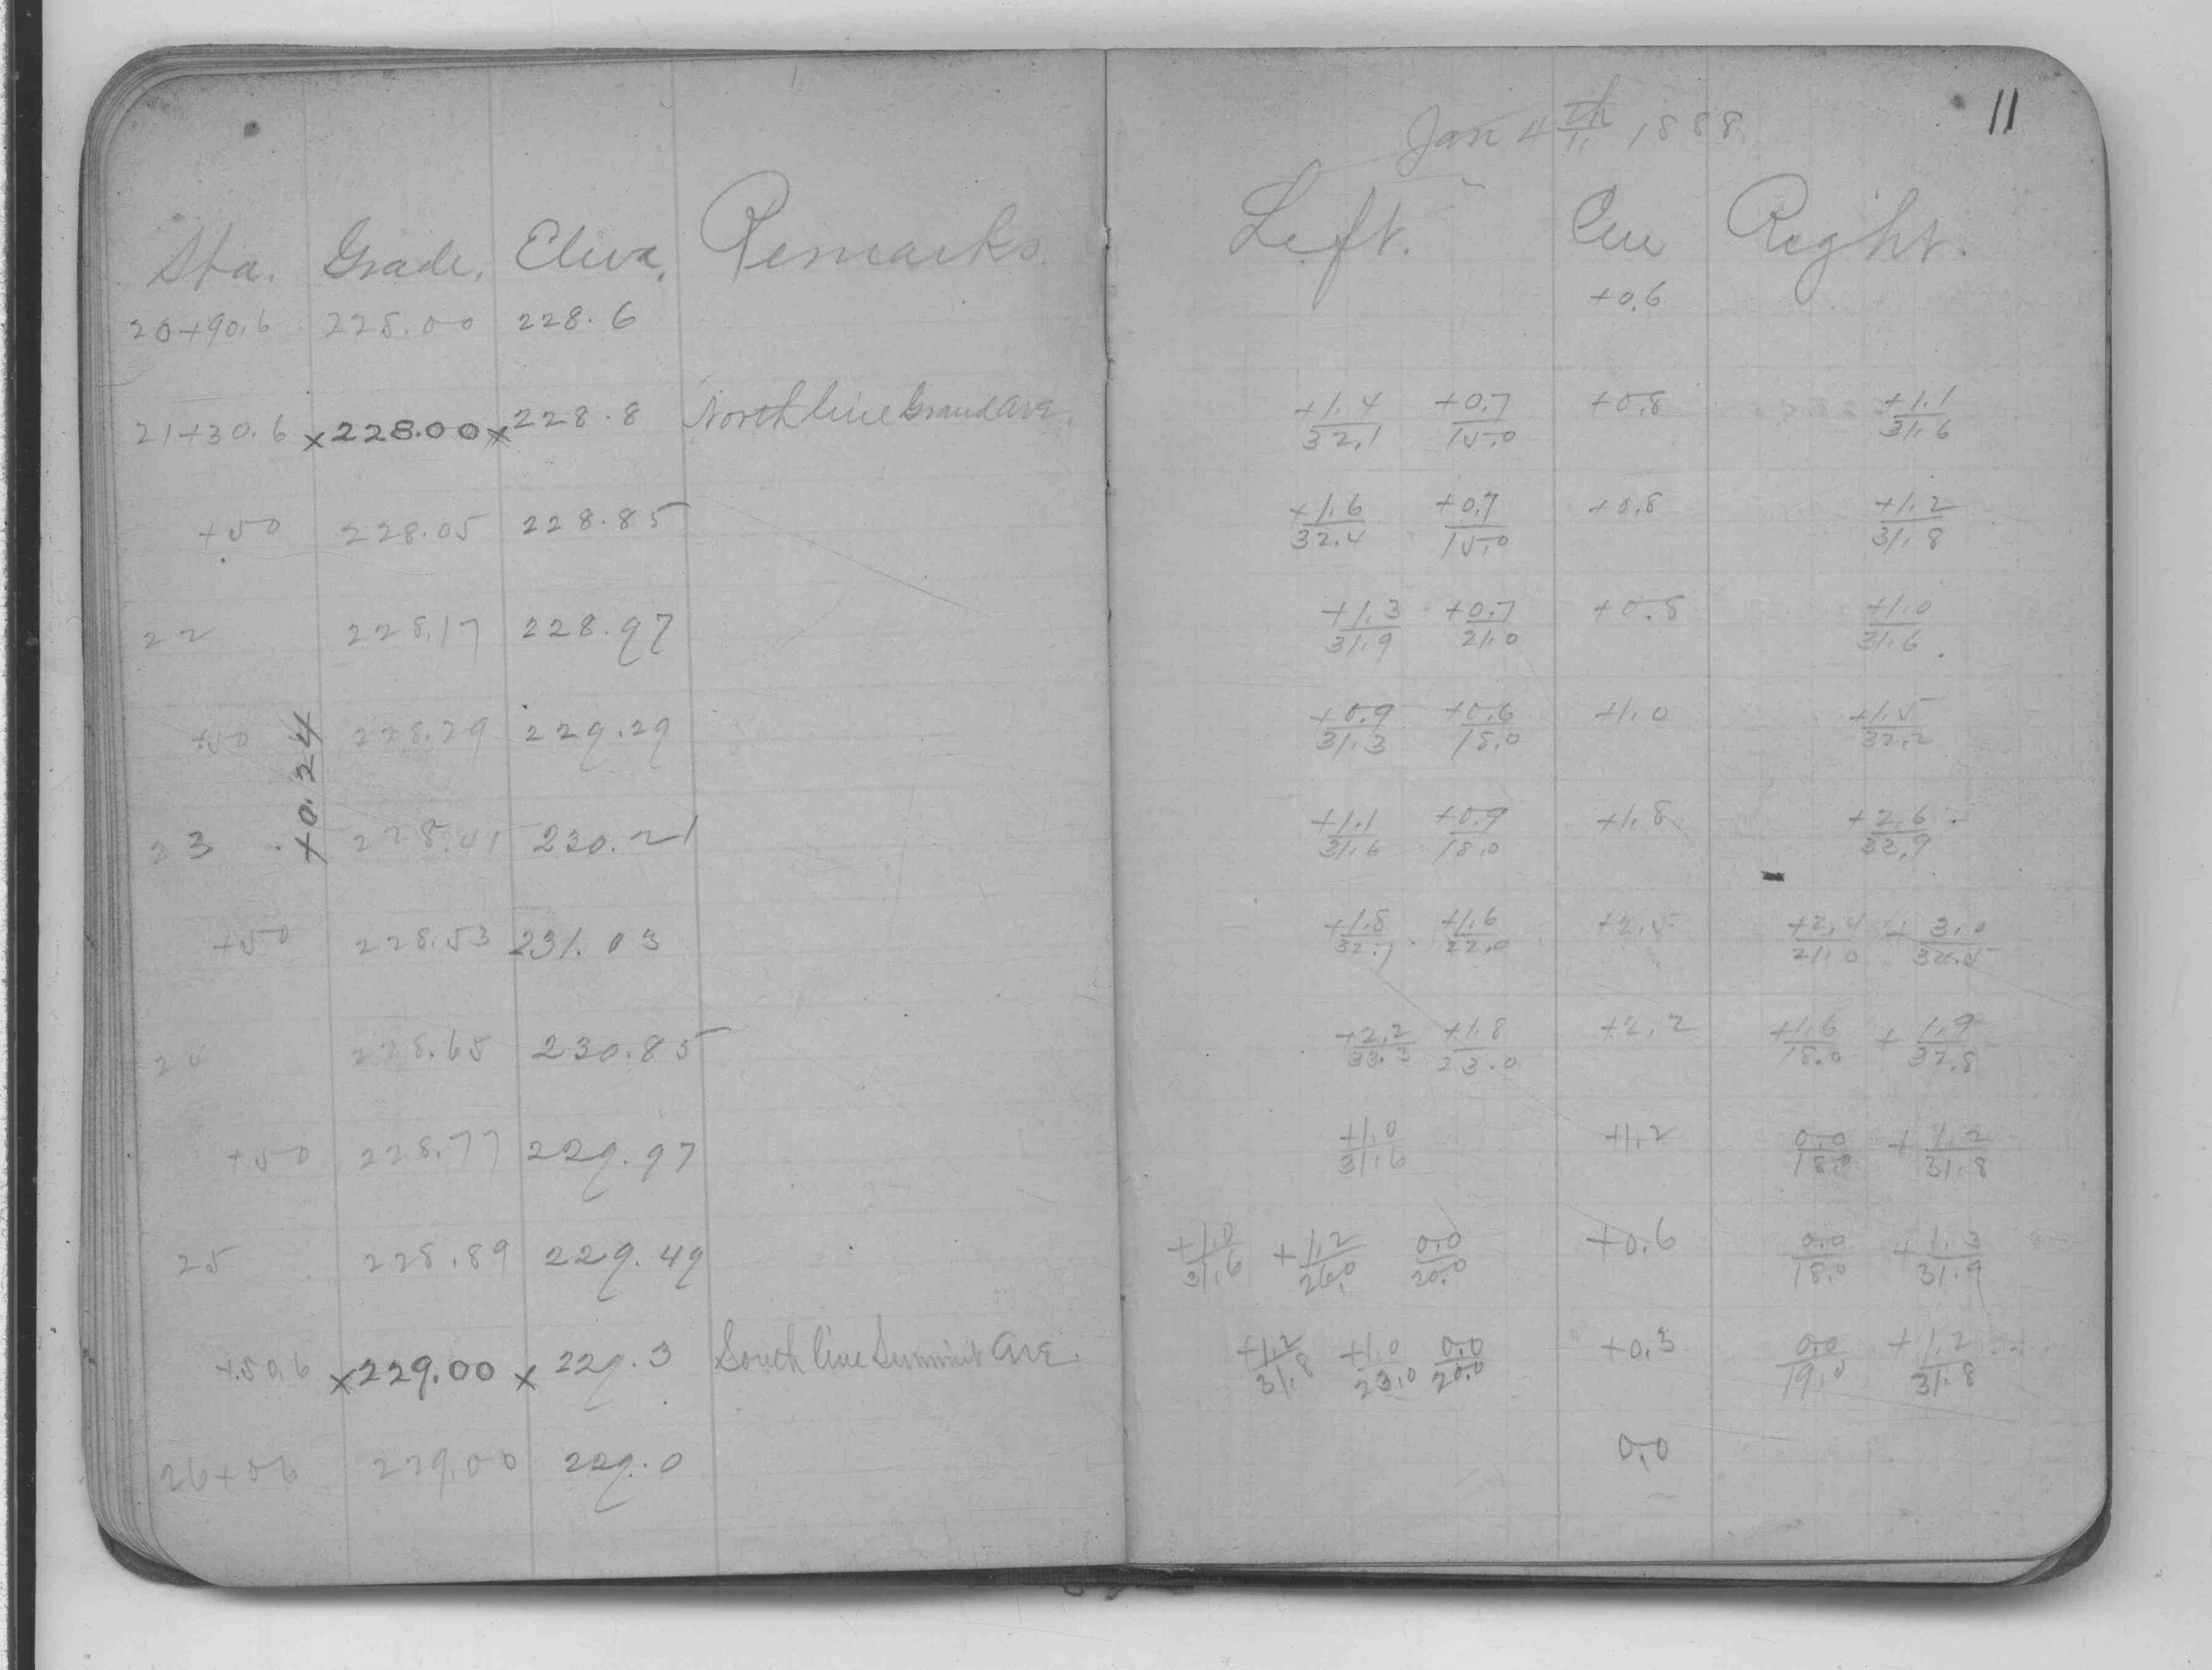 11
Jan 4th 1888.
Sta. Grade. Eleva. Remarks. Left. Cen Right.
20+90.6 228.00 228.6 +0.6
21+30.6 x 228.00 x 228.8 North line Grand Ave. +1.4/32.1 +0.7/15.0 +0.8 +1.1/31.6
+50 228.05 228.85 +1.6/32.4 +0.7/15.0 +0.8 +1.2/31.8
22 228.17 228.97 +1.3/31.9 +0.7/21.0 +0.8 +1.0/31.6
+50 228.29 229.29 +0.9/31.3 +0.6/18.0 +1.0 +1.5/32.2
+0.24
23 228.41 230.21 +1.1/31.6 +0.9/18.0 +1.8 +2.6/33.9
+50 228.53 231.03 +1.8/32.7 +1.6/22.0 +2.5 +2.4/21.0 +3.0/34.5
24 228.65 230.85 +2.2/33.3 +1.8/23.0 +2.2 +1.6/18.0 +1.9/32.8
+50 228.77 229.97 +1.0/31.6 +1.2 0.0/18.0 +1.2/31.8
25 228.89 229.49 +1.0/31.6 +1.2/26.0 0.0/20.0 +0.6 0.0/18.0 +1.3/31.9
+50.6 x 229.00 x 229.3 South line Summit Ave. +1.2/31.8 +1.0/23.0 0.0/20.0 +0.3 0.0/19.0 +1.2/31.8
26+06 229.00 229.0 0.0